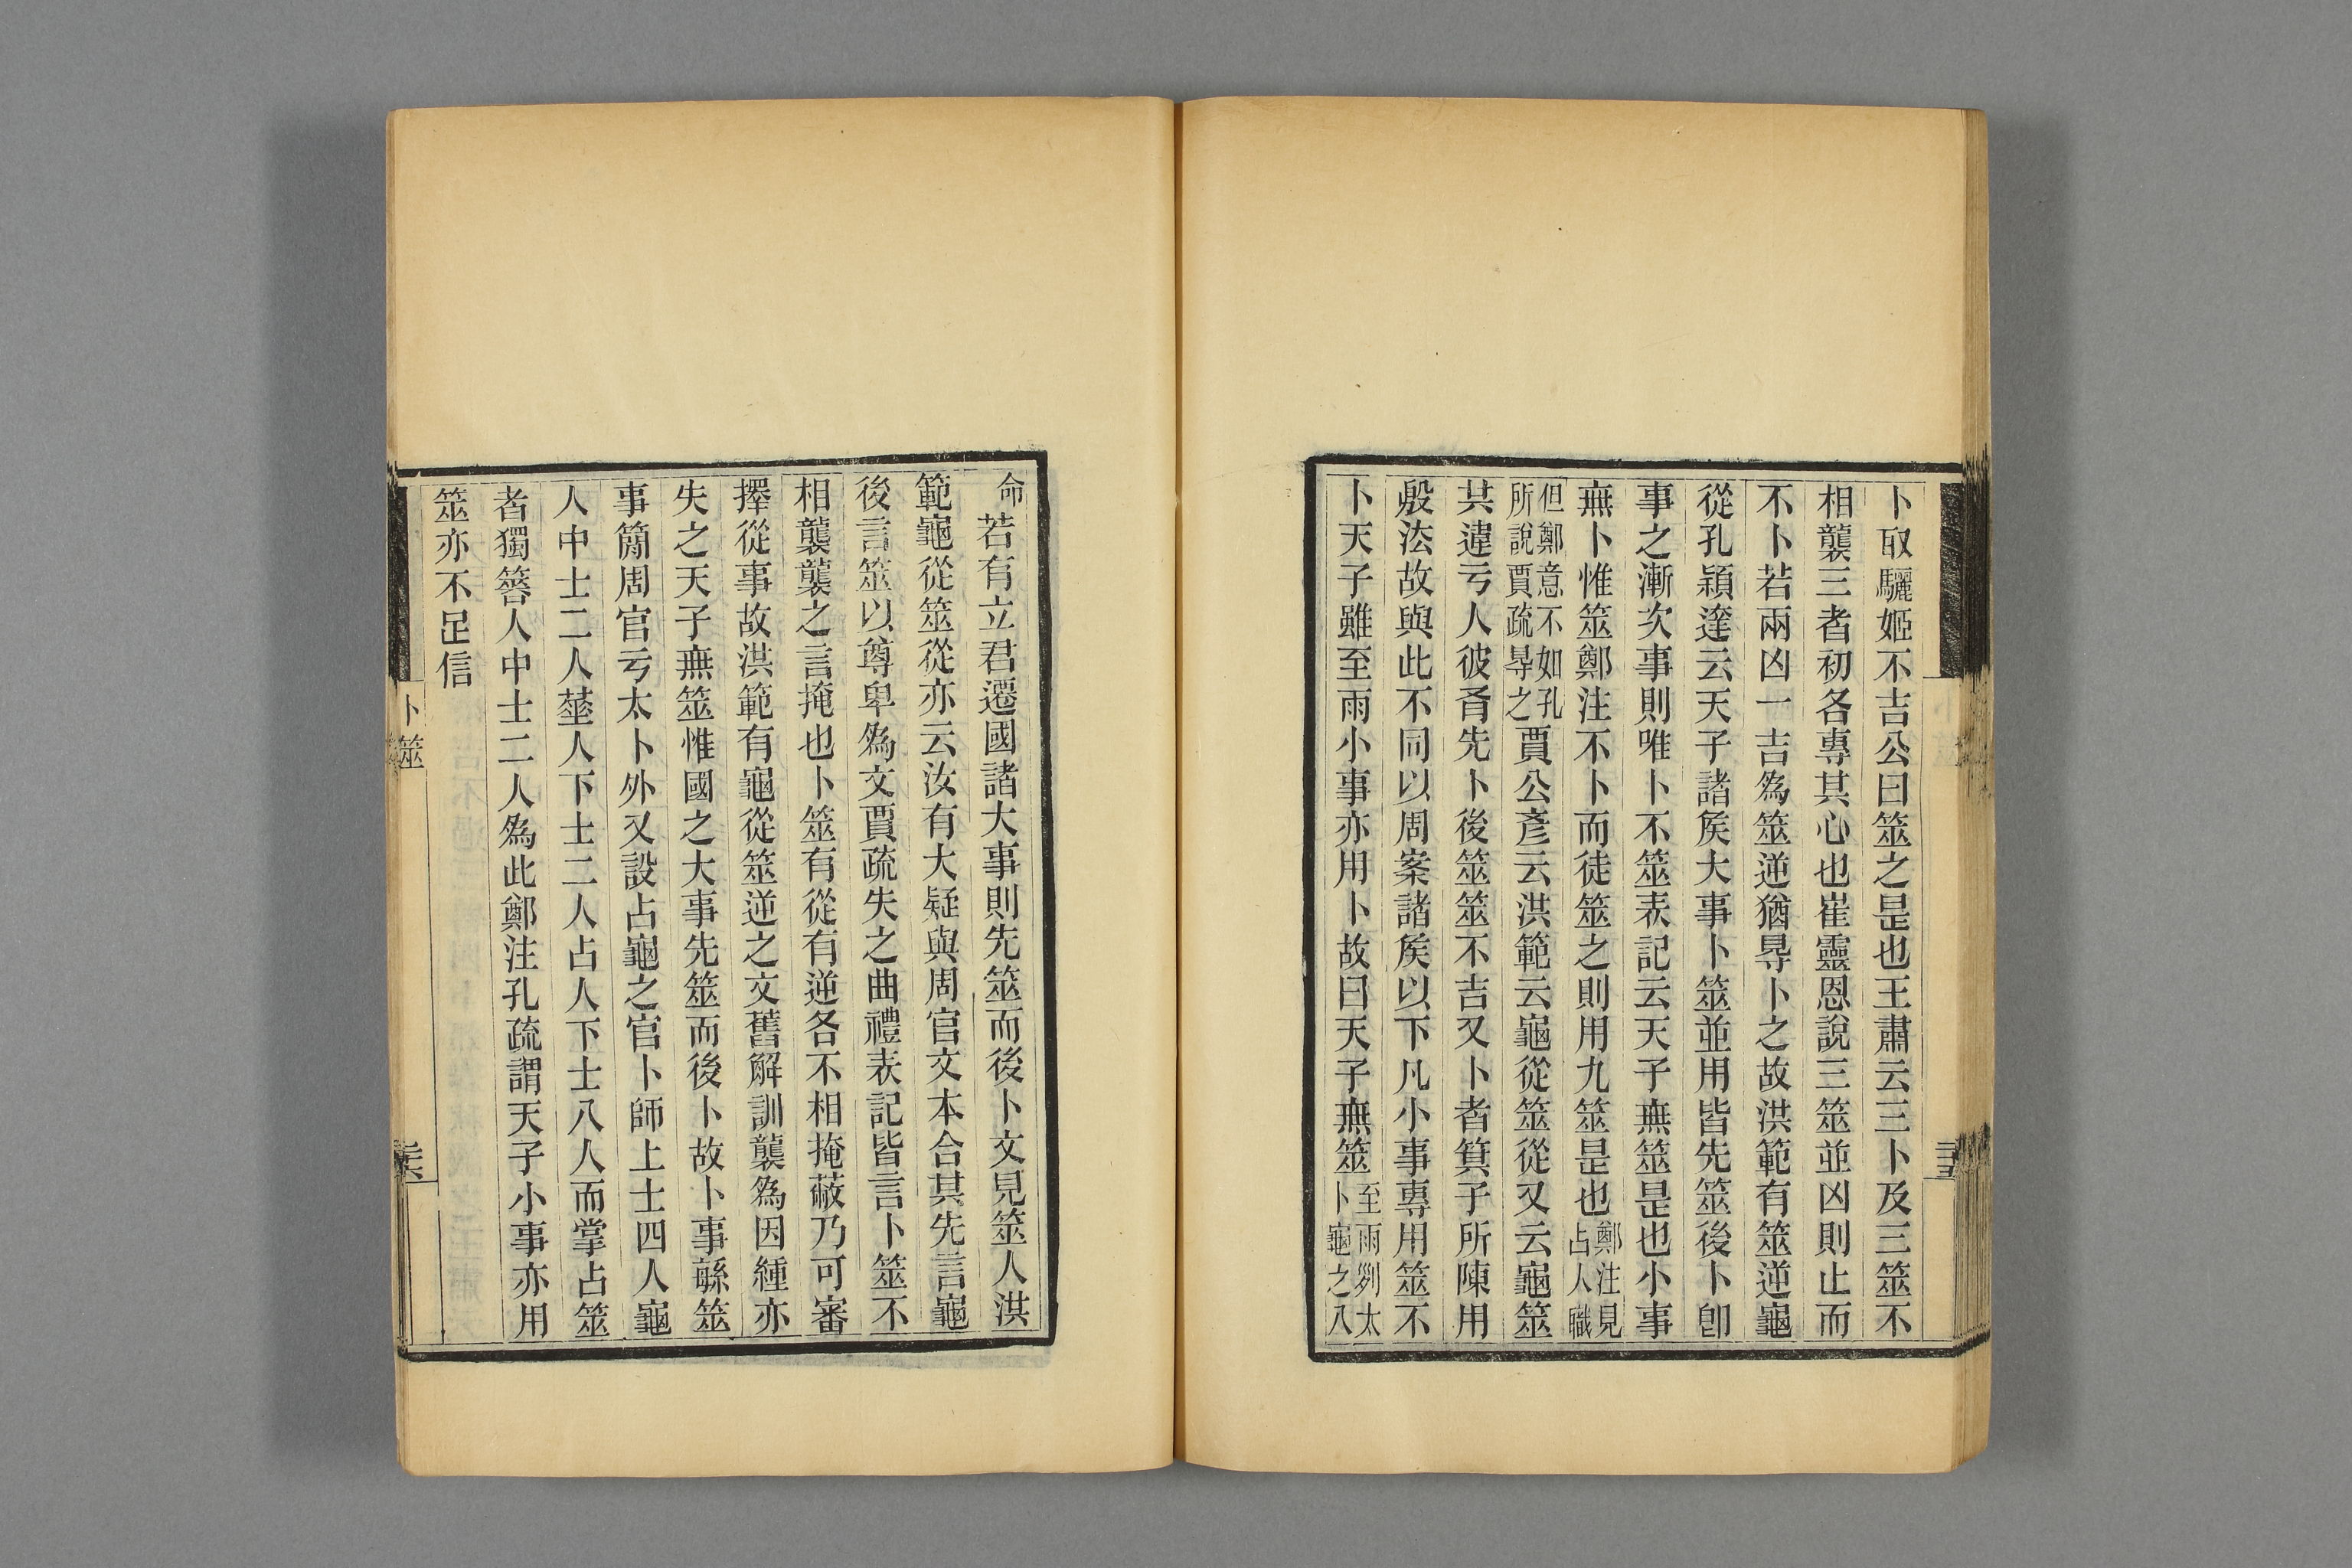 卜取驪姬不吉公曰筮之是也王肅云三卜及三筮不
相襲三者初各專其心也崔靈恩說三筮並凶則止而
不卜若兩凶一吉為筮逆猶㝵卜之故洪範有筮逆龜
從孔穎達云天子諸矦大事卜筮並用皆先筮後卜卽
事之漸次事則唯卜不筮表記云天子無筮是也小事
無卜惟筮鄭注不卜而徒筮之則用九筮是也鄭注見占人職
但鄭意不如孔所說賈疏㝵之賈公彥云洪範云龜從筮從又云龜筮
共違亏人彼肻先卜後筮筮不吉又卜者箕子所陳用
殷法故與此不同以周案諸矦以下凡小事專用筮不
卜天子雖至兩小事亦用卜故曰天子無筮至兩𠛱太卜龜之八
命若有立君遷國諸大事則先筮而後卜文見筮人洪
範龜從筮從亦云汝有大疑與周官文本合其先言龜
後言筮以尊卑為文賈疏失之曲禮表記皆言卜筮不
相襲襲之言掩也卜筮有從有逆各不相掩蔽乃可審
擇從事故洪範有龜從筮逆之文舊解訓襲為因緟亦
失之天子無筮惟國之大事先筮而後卜故卜事緐筮
事簡周官亏太卜外又設占龜之官卜師上士四人龜
人中士二人菙人下士二人占人下士八人而掌占筮
者獨簭人中士二人為此鄭注孔疏謂天子小事亦用
筮亦不足信
卜筮